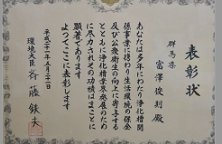 表彰状
群馬県
富澤俊則殿
あなたは多年にわたり浄化槽関
係事業に携わり生活環境の保全
及び公衆衛生の向上に寄与する
とともに浄化槽業界発展のため
に尽力されその功績はまことに
顕著であります
よってここに表彰します
平成二十一年五月二十二日
環境大臣 斉藤鉄夫